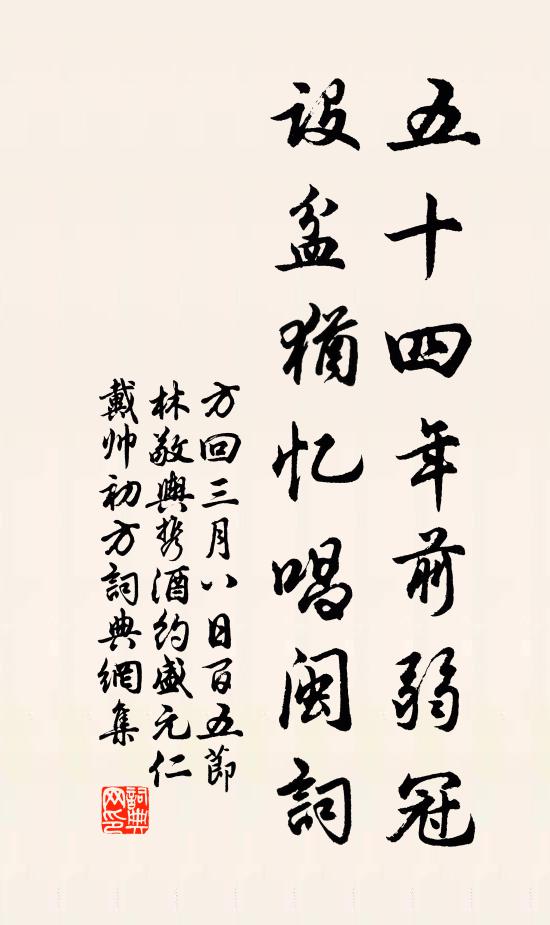 五十四年前弱冠
设盆犹忆唱闽詞
方回三月八日百五節
林敬輿携酒约盛元仁
戴帅初方詞典網集
詞典网印